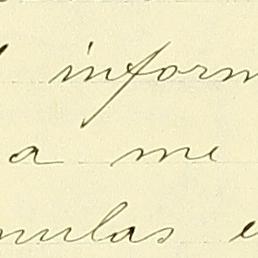 inform
a me
mulas e